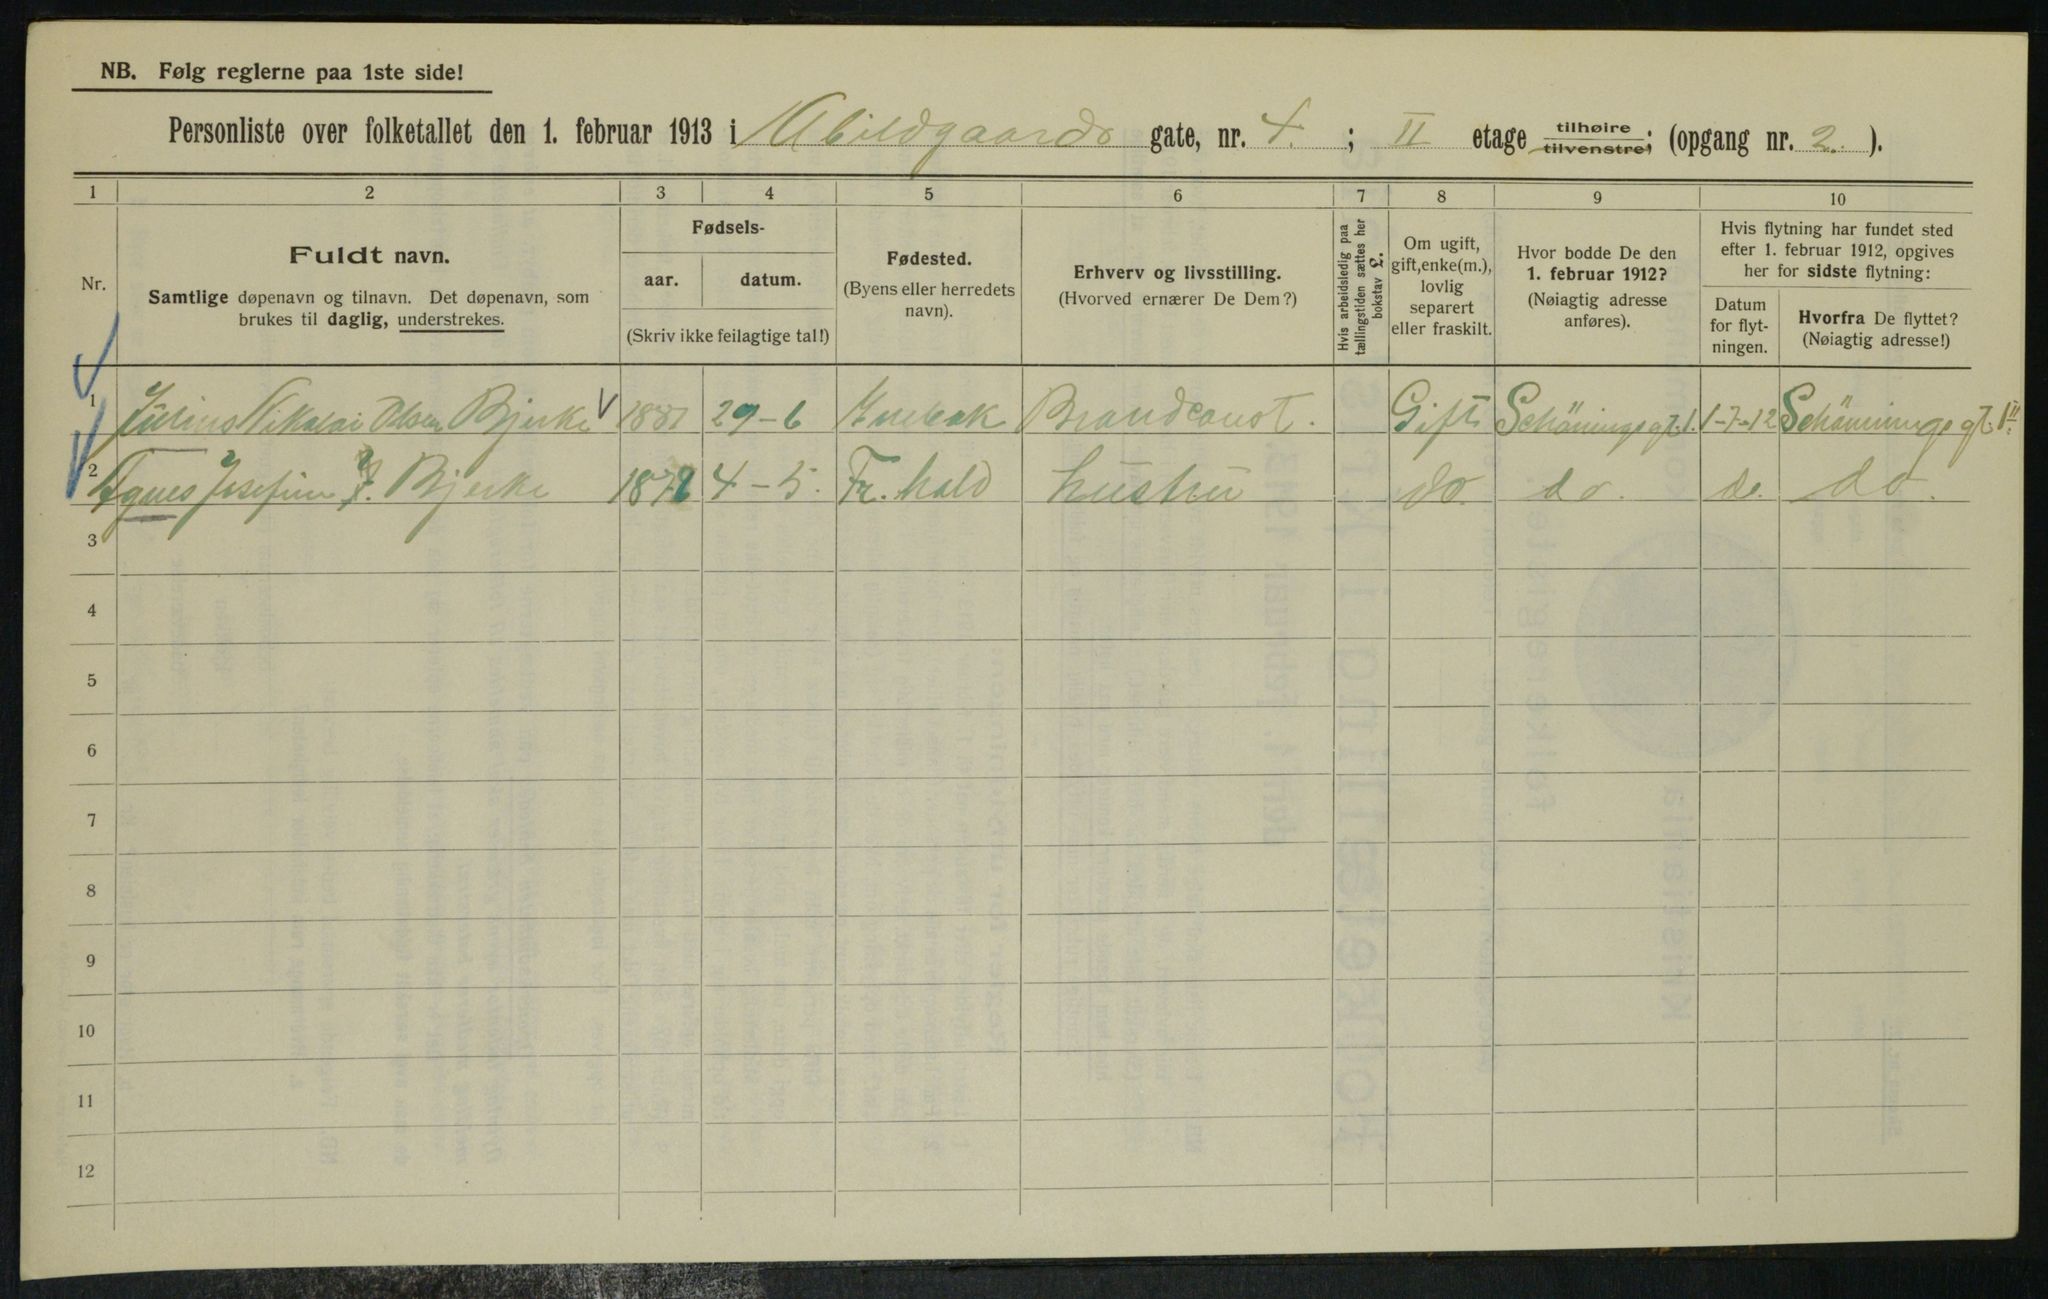 NB. Følg reglerne paa 1ste side!
Personliste over folketallet den 1. februar 1913 i Abildgaards gate, nr. 4. ; II etage tilhøire tilvenstre; (opgang nr. 2. ).
1 2 3 4 5 6 7 8 9 10
Nr.
Fuldt navn.
Samtlige døpenavn og tilnavn. Det døpenavn, som
brukes til daglig, understrekes.
Fødsels-
aar. datum.
(Skriv ikke feilagtige tal!)
Fødested.
(Byens eller herredets
navn).
Erhverv og livsstilling.
(Hvorved ernærer De Dem?)
Hvis arbeidsledig paa
tællingstiden sættes her
bokstav L.
Om ugift,
gift,enke(m.),
lovlig
separert
eller fraskilt.
Hvor bodde De den
1. februar 1912?
(Nøiagtig adresse
anføres).
Hvis flytning har fundet sted
efter 1. februar 1912, opgives
her for sidste flytning:
Datum
for flyt-
ningen.
Hvorfra De flyttet?
(Nøiagtig adresse!)
1 Julius Nikolai Olsen Bjerke 1881 29-6 Enebak Brandconst. Gift Schöningsgt. 1. 1-7-12 Schönningsgt. 1 II
2 Agnes Josefine Bjerke 1872 4-5. Fr.hald hustru do. do. do. do.
3
4
5
6
7
8
9
10
11
12